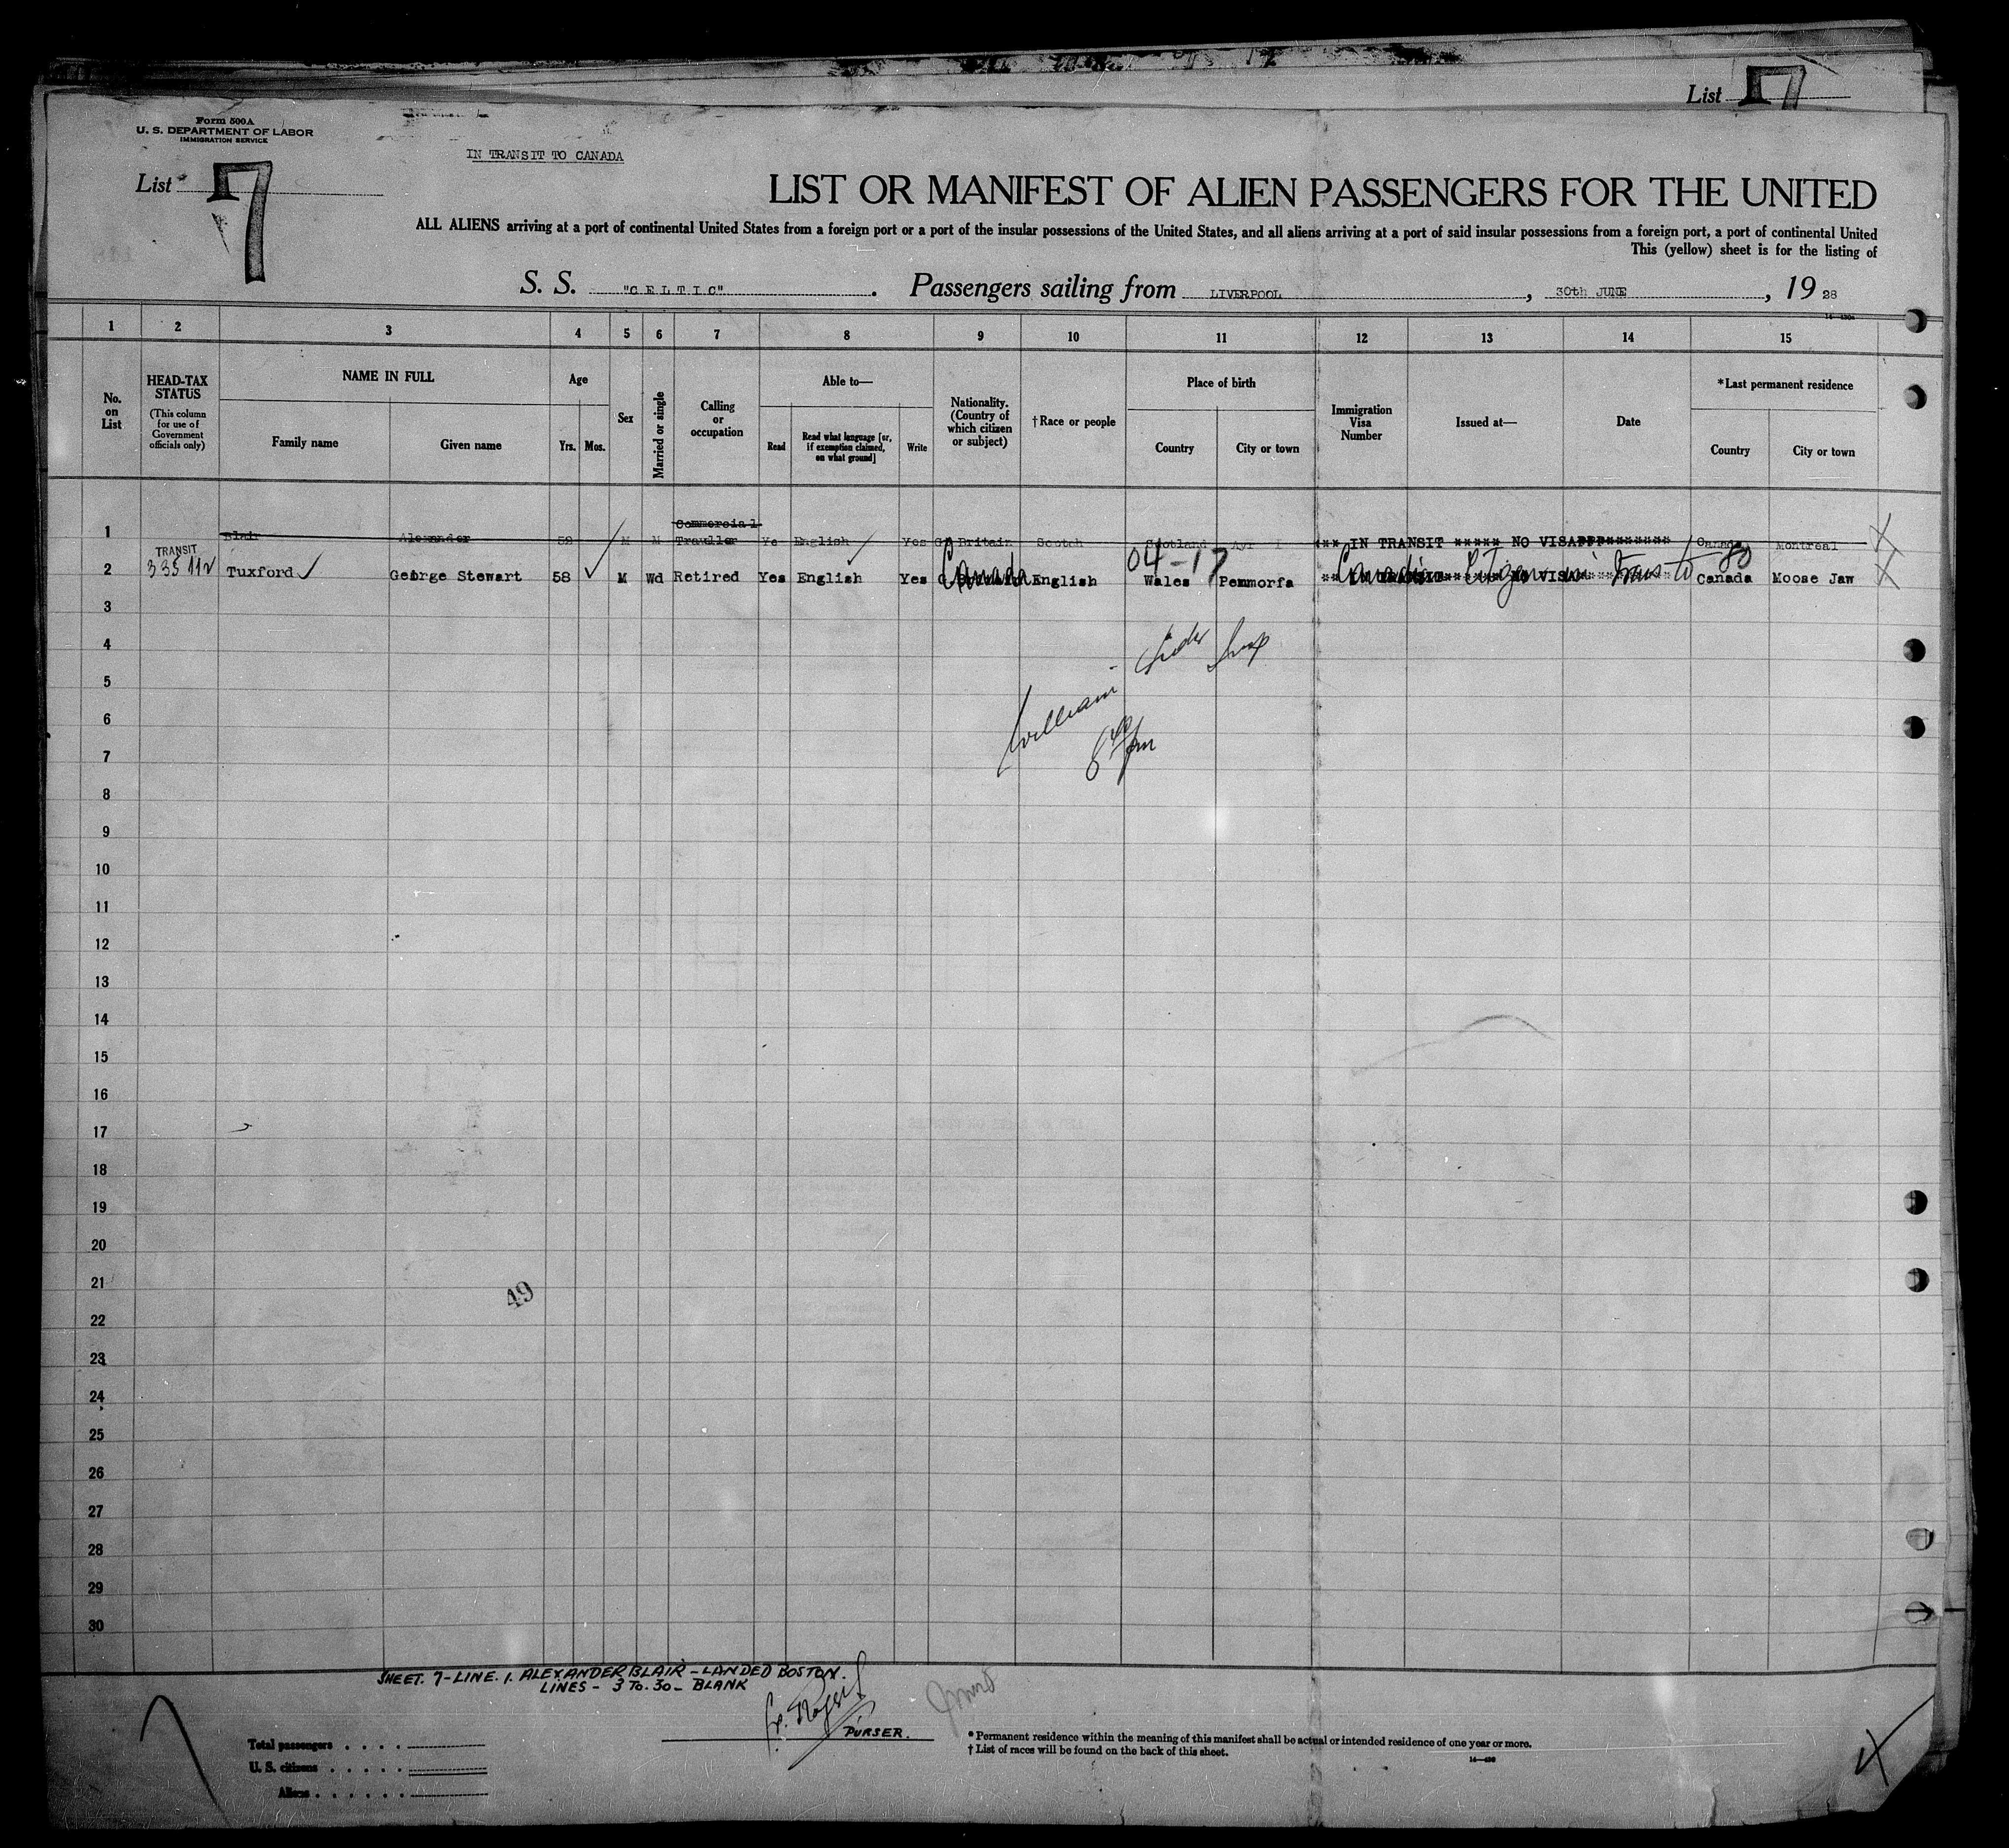 List 7
Form 500A
U. S. DEPARTMENT OF LABOR
IMMIGRATION SERVICE
IN TRANSIT TO CANADA
List 7
LIST OR MANIFEST OF ALIEN PASSENGERS FOR THE UNITED
ALL ALIENS arriving at a port of continental United States from a foreign port or a port of the insular possessions of the United States, and all aliens arriving at a port of said insular possessions from a foreign port, a port of continental United
This (yellow) sheet is for the listing of
S. S. "CELTIC". Passengers sailing from LIVERPOOL, 30th JUNE, 1928
1 2 3 4 5 6 7 8 9 10 11 12 13 14 15
No. on List
HEAD-TAX STATUS
(This column for use of Government officials only)
NAME IN FULL
Family name Given name
Age
Yrs. Mos.
Sex
Married or single
Calling or occupation
Able to—
Read
Read what language [or, if exemption claimed, on what ground]
Write
Nationality. (Country of which citizen or subject)
†Race or people
Place of birth
Country City or town
Immigration Visa Number
Issued at—
Date
*Last permanent residence
Country City or town
1 Blair Alexander 58 M M Commercial Traveller Ye English Yes G Britain Scotch Scotland Ayr *** IN TRANSIT ***** NO VISA Canada Montreal
TRANSIT
04-17
80
2 Tuxford George Stewart 58 M Wd Retired Yes English Yes Canada English Wales Penmorfa Canadian Citizen in Trans to Canada Moose Jaw
3
4
5
William
6
7
8
9
10
11
12
13
14
15
16
17
18
19
20
21
49
22
23
24
25
26
27
28
29
30
SHEET. 7-LINE. 1. ALEXANDER BLAIR - LANDED BOSTON.
LINES - 3 TO. 30 - BLANK
PURSER.
Total passengers
U. S. citizens
Aliens
* Permanent residence within the meaning of this manifest shall be actual or intended residence of one year or more.
† List of races will be found on the back of this sheet.